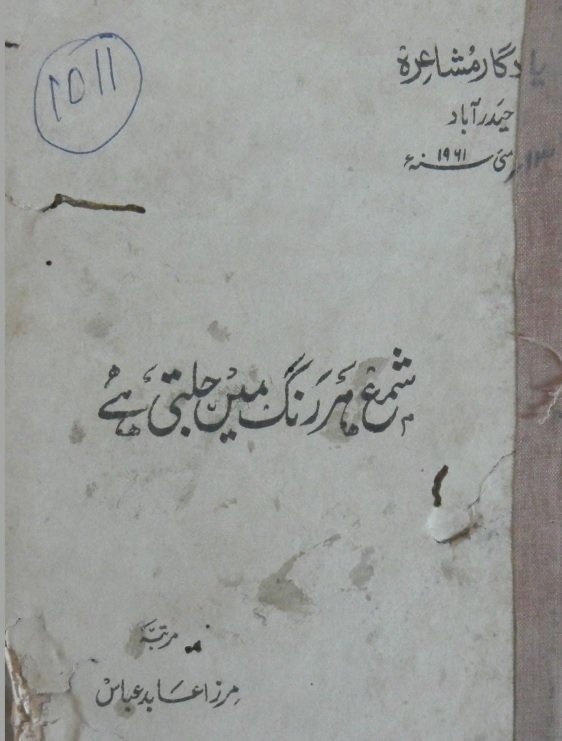 1011
یادگار مُشاعرہ
حیدرآباد
۱۳ مئی سنہ ۱۹۶۱ء
شمع ہر رنگ میں جلتی ہے
مرتبہ
مرزا عابد عباس